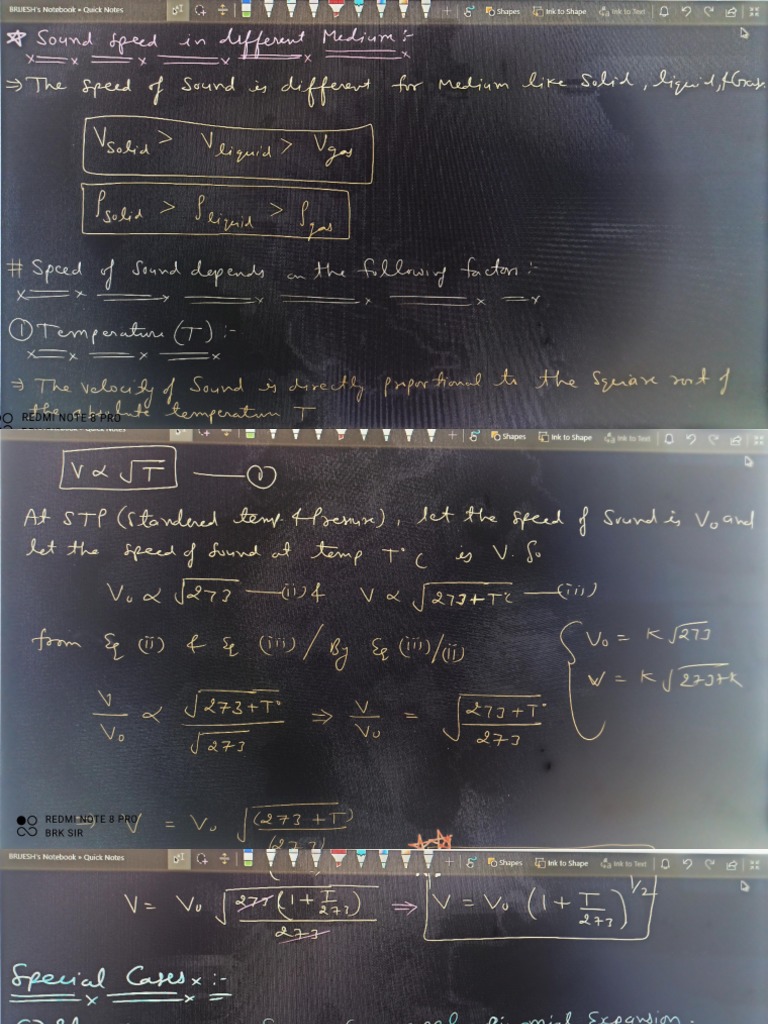 BRIJESH's Notebook » Quick Notes
Shapes
Ink to Shape
Ink to Text
☆ Sound speed in different Medium:-
⇒ The speed of Sound is different for Medium like Solid, liquid, & Gas.
V_Solid > V_liquid > V_gas
ρ_Solid > ρ_liquid > ρ_gas
# Speed of sound depends on the following factors:-
① Temperature (T) :-
⇒ The velocity of Sound is directly proportional to the Square root of
the absolute temperature T
REDMI NOTE 8 PRO
Shapes
Ink to Shape
Ink to Text
V ∝ √T —— ①
At STP (Standered temp & Pressure), let the speed of Sound is V₀ and
let the speed of Sound at temp T°C is V. So
V₀ ∝ √273 —(ii) & V ∝ √273+T°C —(iii)
from Eq (ii) & Eq (iii) / By Eq (iii)/(ii)
V₀ = K√273
V = K√273+K
V/V₀ ∝ √273+T°/√273 ⇒ V/V₀ = √(273+T°/273)
⇒ V = V₀ √((273+T)/(273))
REDMI NOTE 8 PRO
BRK SIR
BRIJESH's Notebook » Quick Notes
Shapes
Ink to Shape
Ink to Text
V = V₀ √(273(1+T/273)/273) ⇒ V = V₀ (1+T/273)^1/2
Special Cases :-
Binomial Expansion.